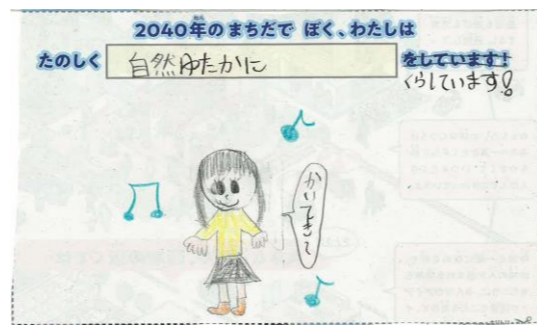 2040年のまちだで ぼく、わたしは
たのしく 自然ゆたかに をしています!
くらしています!
かいてき~